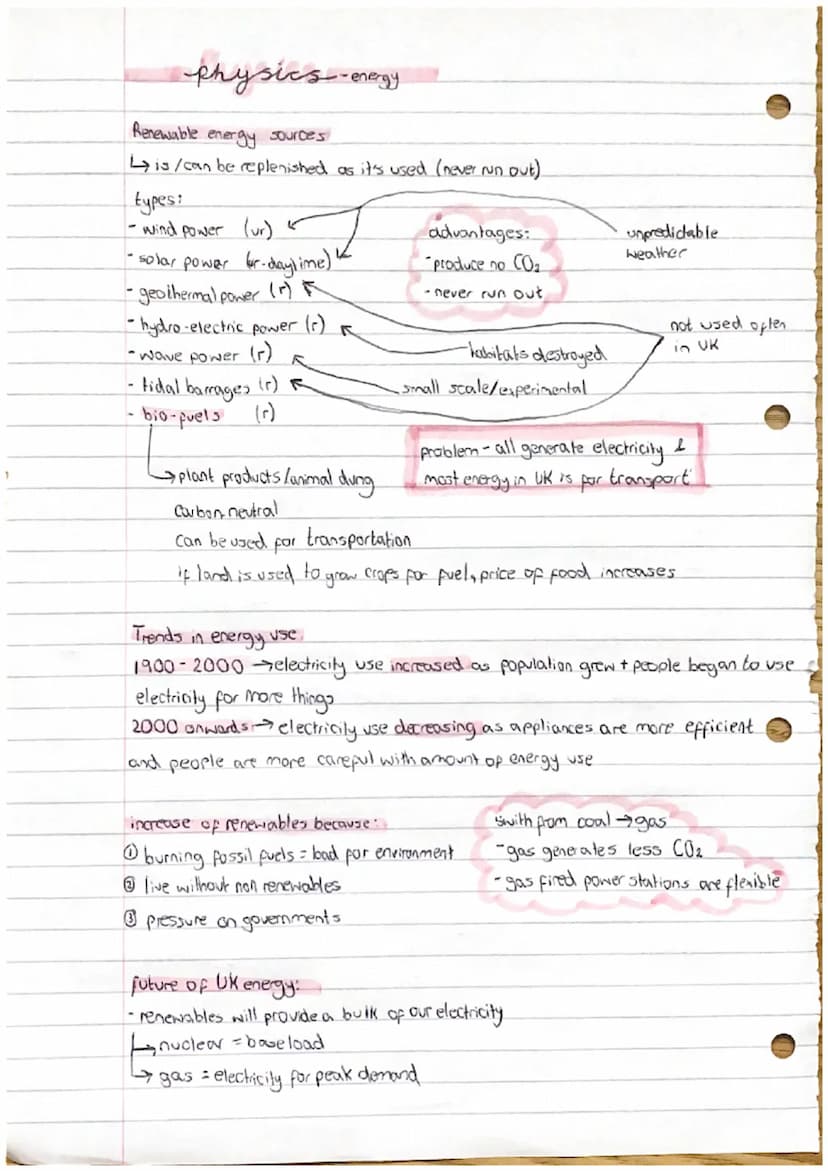 physics - energy
Renewable energy sources
↳ is/can be replenished as it's used (never run out)
types:
- wind power (ur)
unpredictable
weather
- solar power (ur-daytime)
advantages:
- produce no CO₂
- never run out
- geothermal power (r)
not used often
in UK
- hydro-electric power (r)
habitats destroyed
- wave power (r)
small scale/experimental
- tidal barrages (r)
- bio-fuels (r)
problem - all generate electricity &
most energy in UK is for transport
→ plant products/animal dung
Carbon neutral
Can be used for transportation
if land is used to grow crops for fuel, price of food increases
Trends in energy use
1900 - 2000 → electricity use increased as population grew + people began to use
electricity for more things
2000 onwards → electricity use decreasing as appliances are more efficient
and people are more careful with amount of energy use
increase of renewables because:
① burning fossil fuels = bad for environment
② live without non renewables
③ pressure on governments
swith from coal → gas
- gas generates less CO₂
- gas fired power stations are flexible
future of UK energy:
- renewables will provide a bulk of our electricity
↳ nuclear = baseload
↳ gas = electricity for peak demand